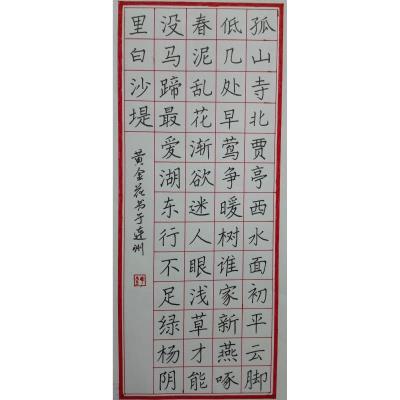 孤山寺北贾亭西水面初平云脚
低几处早莺争暖树谁家新燕啄
春泥乱花渐欲迷人眼浅草才能
没马蹄最爱湖东行不足绿杨阴
里白沙堤
黄金花书于